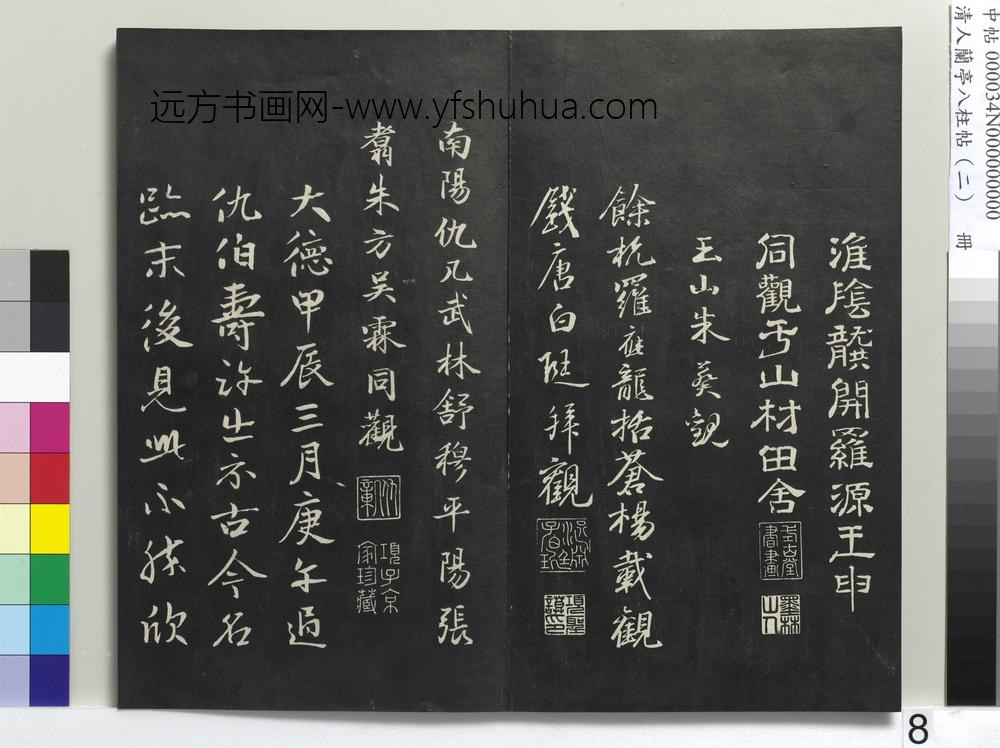 中帖 000034N000000000
清人蘭亭八柱帖（二） 冊
远方书画网-www.yfshuhua.com
淮陰龔開羅源王申
同觀于山村田舍
玉山朱葵觀
餘杭羅應龍括蒼楊載觀
錢唐白珽拜觀
南陽仇几武林舒穆平陽張
翥朱方吳霖同觀
大德甲辰三月庚午過
仇伯壽許出示古今名
跡末後見此不勝欣
墨林山人
項子京家珍藏
8